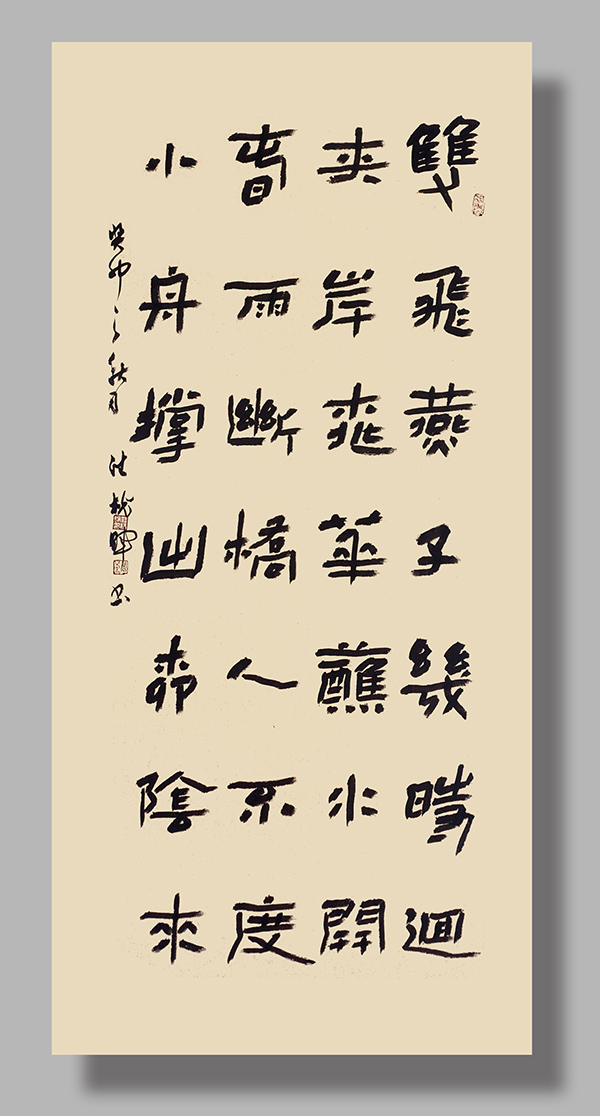 雙飛燕子幾時迴
夾岸桃華蘸水開
春雨斷橋人不度
小舟撐出柳陰來
癸卯之秋月 书